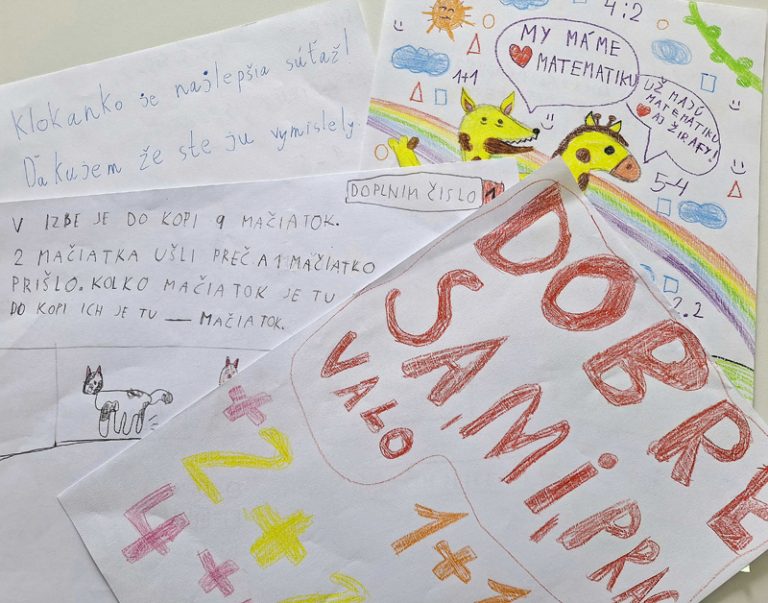 Klokanko je najlepšia súťaž!
Ďakujem že ste ju vymislely.
4:2
MY MÁME
MATEMATIKU
1+1
UŽ MAJÚ
MATEMATIKU
AJ ŽIRAFY!
5-4
2.2
DOPLNIM ČISLO
V IZBE JE DO KOPI 9 MAČIATOK.
2 MAČIATKA UŠLI PREČ A 1 MAČIATKO
PRIŠLO. KOLKO MAČIATOK JE TU
DO KOPI ICH JE TU __ MAČIATOK.
DOBRE
SA MI PRAC
VALO
+
2+
4+
1+1